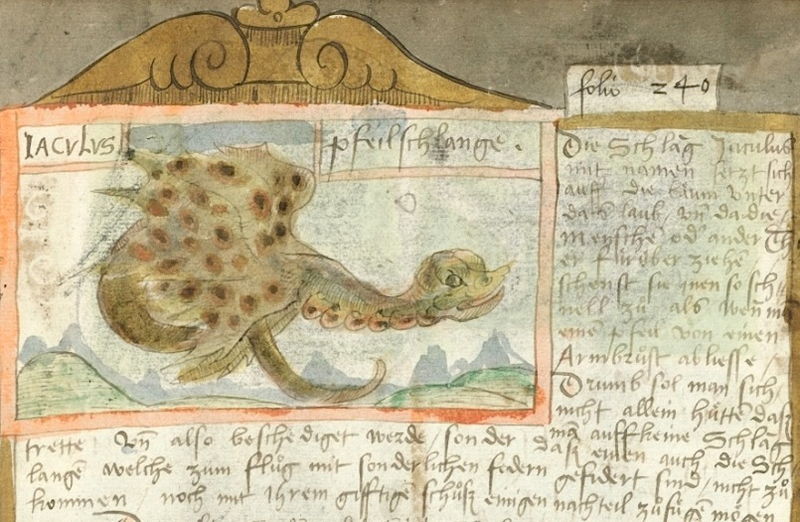 IACVLVS
pfeilschlange.
folio 240
Die Schlãg Iaculus
mit namen setzt sich
auff die Baum unter
das laub, vñ da die
Mensche od' ander Th
er fürüber ziehẽ
scheust sie inen so sch
nell zů als weñ mã
eine pfeil von einen
Armbrust abliesse /
Drumb sol man sich
nicht allein hüttẽ das
mã auff keine Schlãg
trette vñ also beschediget werde / sonder das einen auch die Sch
langẽ welche zum flůg mit sonderlichen federn gefidert sind / nicht zů
kommen / noch mit ihrem gifftige schůsz einigen nachteil zůfůgẽ mögen